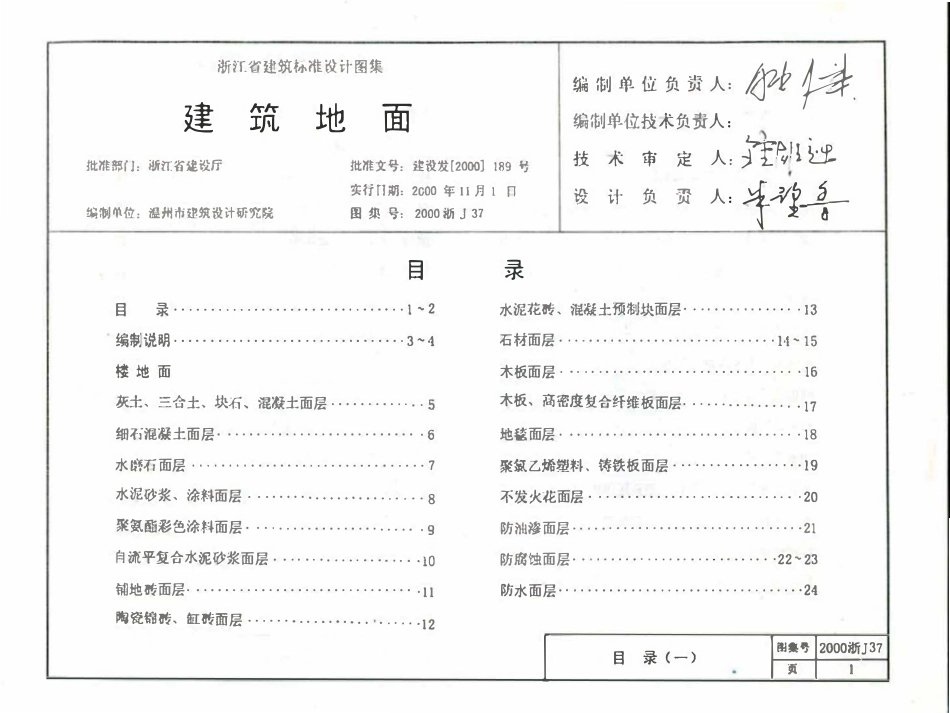 浙江省建筑标准设计图集
建筑地面
批准部门：浙江省建设厅
批准文号：建设发[2000] 189 号
实行日期：2000 年11月1 日
编制单位：温州市建筑设计研究院
图 集 号：2000浙J37
编制单位负责人：
编制单位技术负责人：
技术审定人：
设计负责人：
目 录
目 录································1~2
编制说明································3~4
楼地面
灰土、三合土、块石、混凝土面层·············5
细石混凝土面层·····························6
水磨石面层································7
水泥砂浆、涂料面层·························8
聚氨酯彩色涂料面层·························9
自流平复合水泥砂浆面层····················10
铺地砖面层································11
陶瓷锦砖、缸砖面层························12
水泥花砖、混凝土预制块面层················13
石材面层······························14~15
木板面层··································16
木板、高密度复合纤维板面层················17
地毯面层··································18
聚氯乙烯塑料、铸铁板面层··················19
不发火花面层······························20
防油渗面层································21
防腐蚀面层····························22~23
防水面层··································24
目 录（一）
图集号 2000浙J37
页 1